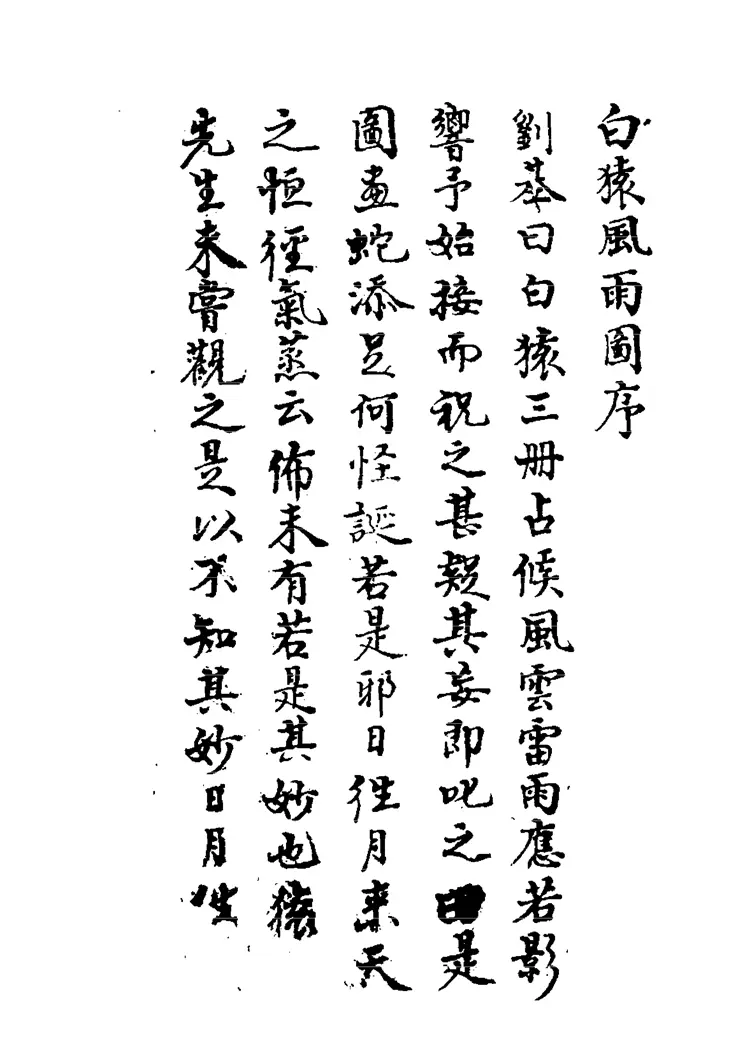 白猿風雨圖序
劉基曰白猿三冊占候風雲雷雨應若影
響予始接而祝之甚疑其妄即叱之曰是
圖畫蛇添足何怪誕若是耶日徃月來天
之恒徑氣蒸云佈未有若是其妙也猿
先生未嘗觀之是以不知其妙日月徃